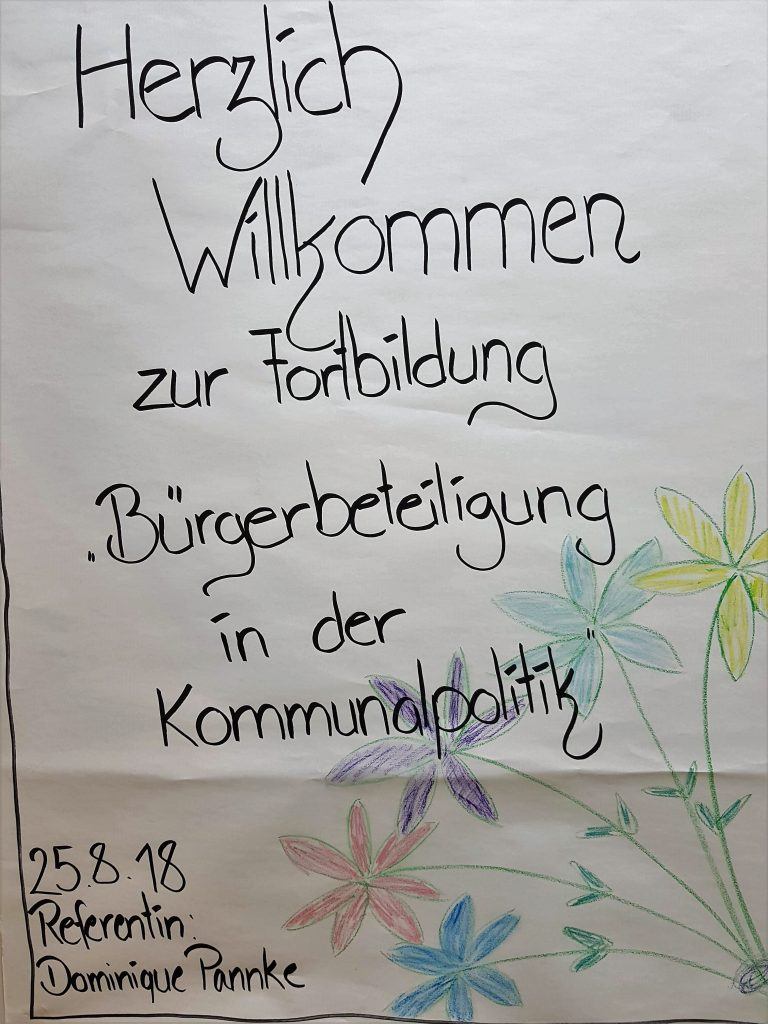 Herzlich
Willkommen
zur Fortbildung
„Bürgerbeteiligung
in der
Kommunalpolitik"
25.8.18
Referentin:
Dominique Pannke